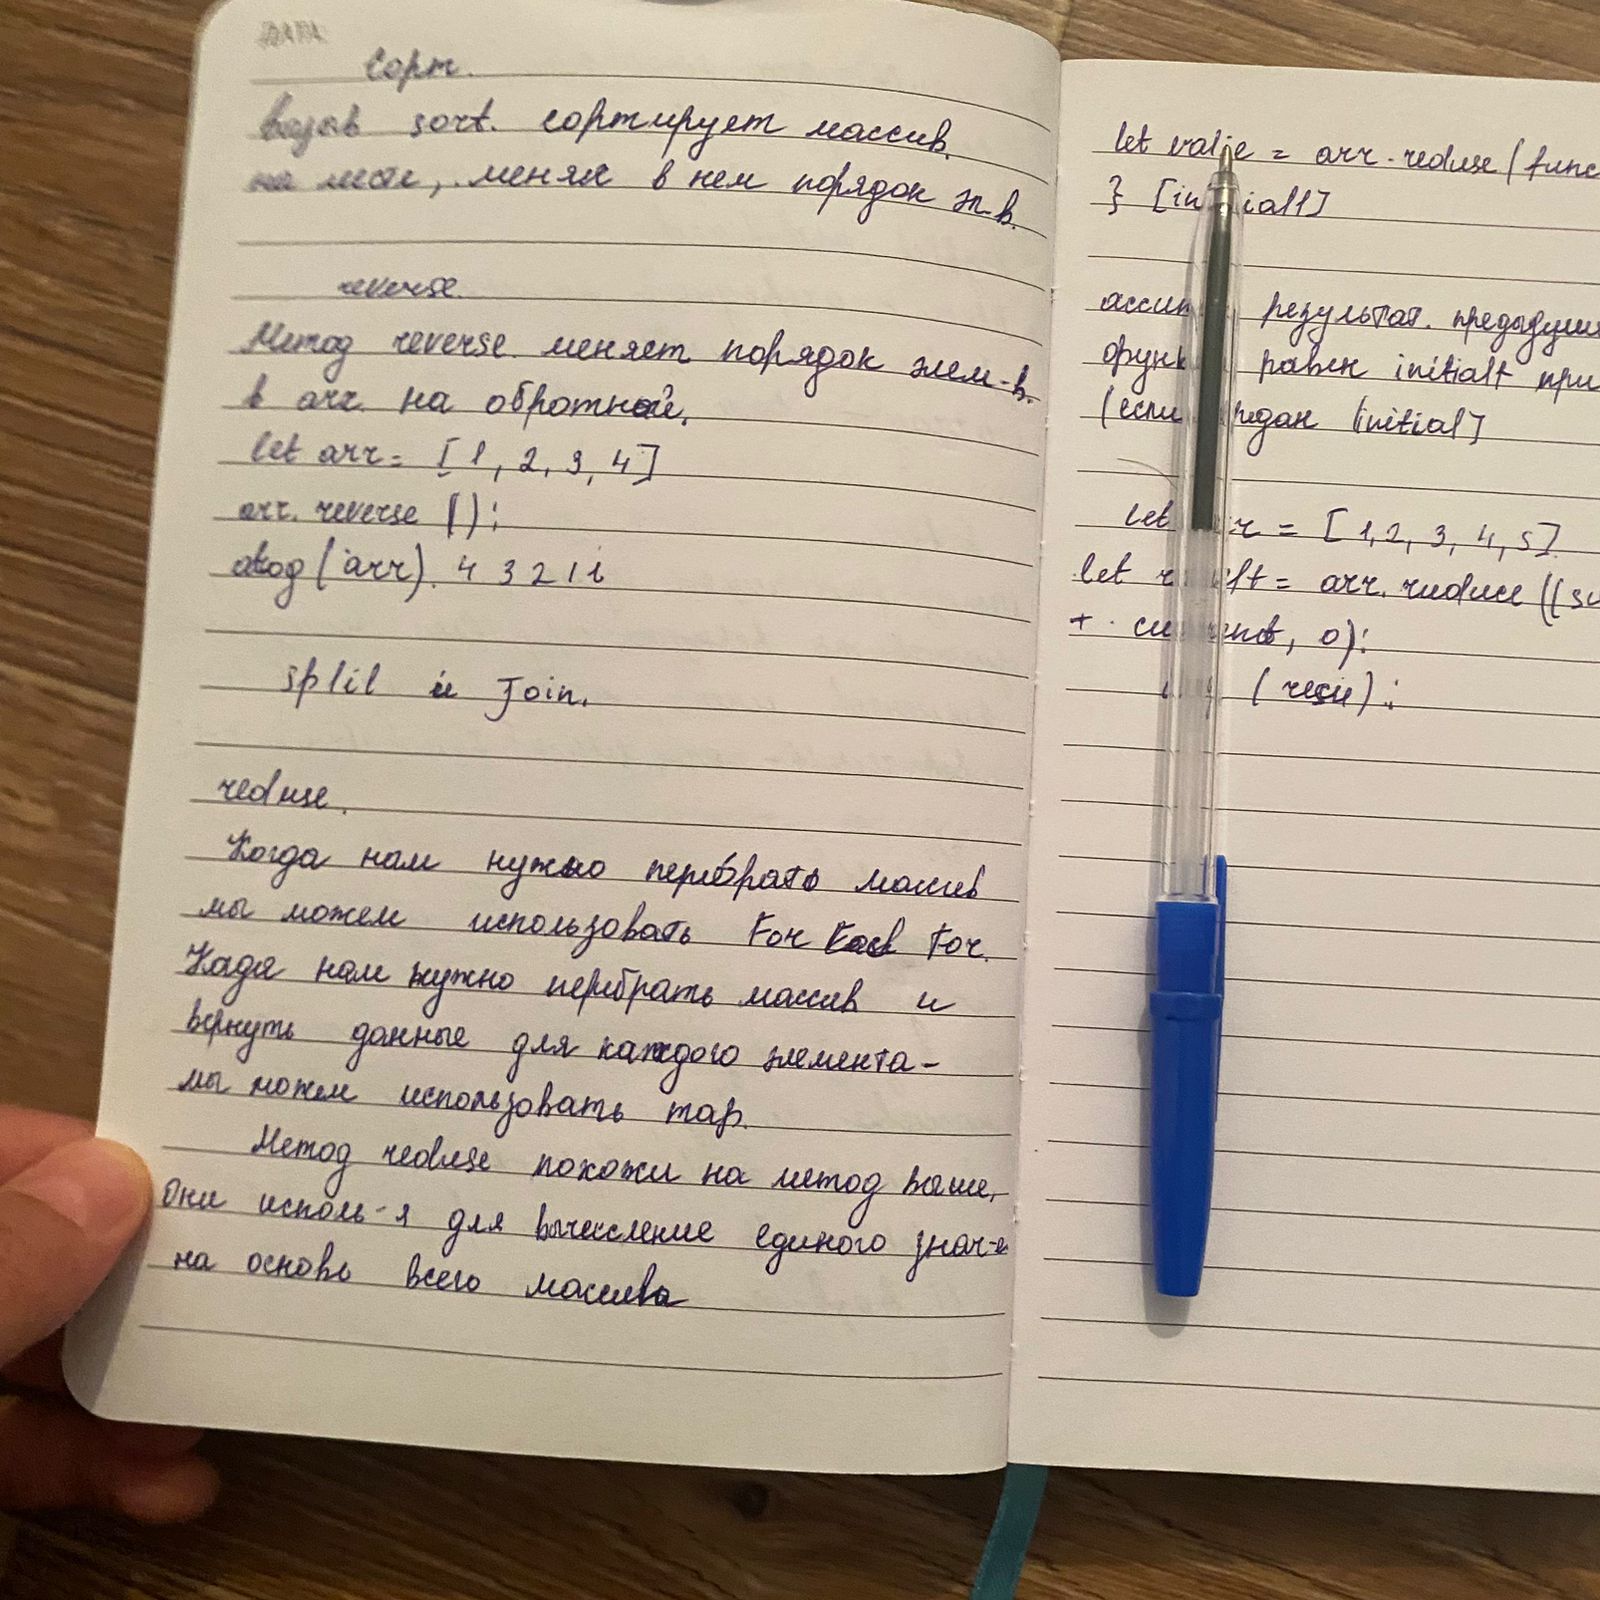 DATA
Сорт.
вызыв sort. сортирует массив.
на месте, меняя в нем порядок эл-в.
reverse.
Метод reverse меняет порядок элем-в.
в arr на обратный.
let arr = [1, 2, 3, 4]
arr. reverse ();
(arr). 4 3 2 1
split и Join.
reduse.
Когда нам нужно перебрать массив
мы можем использовать For Each For.
Когда нам нужно перебрать массив и
вернуть данные для каждого элемента -
мы можем использовать map.
Метод reduse похожи на метод выше,
Они исполь-я для вычесление единого знач-е
на основь всего массива
let value = arr. reduse (func
} [initiall]
результат. предыдущ
равен initialt при
(если initial]
let = [1, 2, 3, 4, 5]
let = arr. reduce ((su
+ , 0):